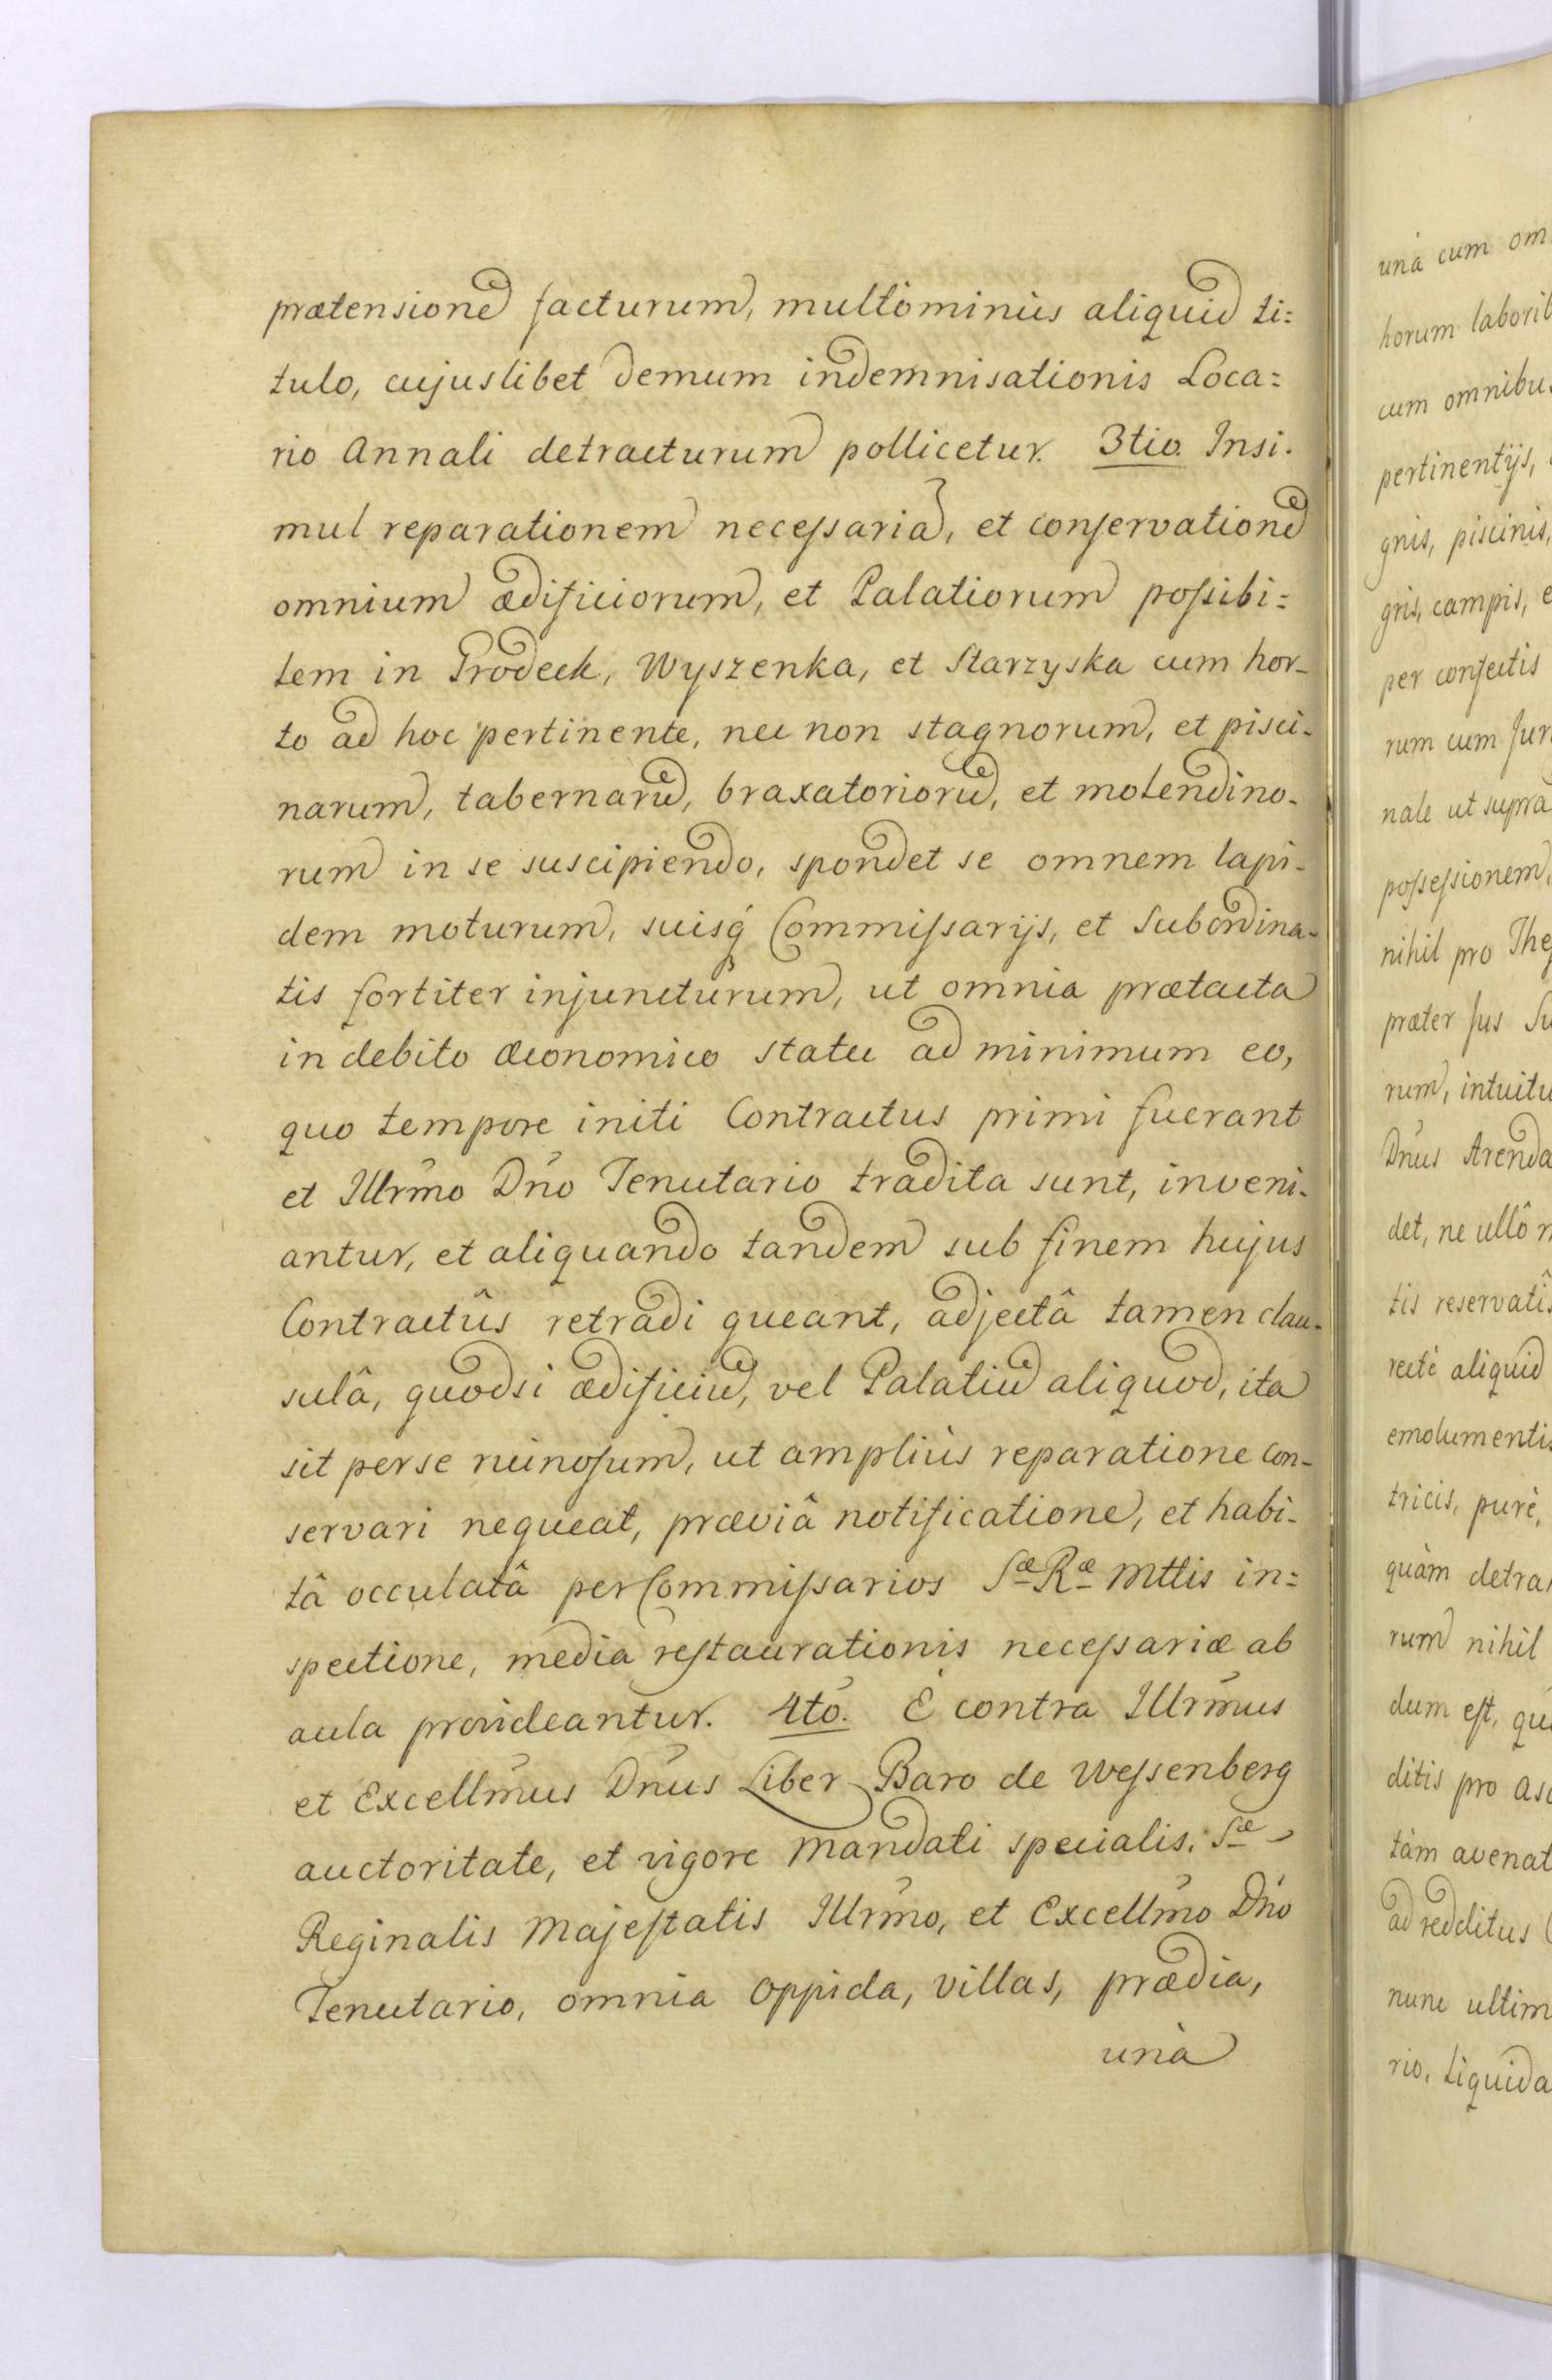 prætensionē facturum, multòminùs aliquid ti=
tulo, cujuslibet demum indemnisationis Loca=
rio Annali detracturum pollicetur. 3tio. Insi-
mul reparationem necessariã, et conservationē
omnium ædificiorum, et Palatiorum possibi=
lem in Grodeck, Wyszenka, et Starzyska cum hor-
to ad hoc pertinente, nec non stagnorum, et pisci-
narum, tabernarū, braxatoriorū, et molendino-
rum in se suscipiendo, spondet se omnem lapi-
dem moturum, suisq́ Commissarijs, et Subordina-
tis fortiter injuncturum, ut omnia prætacta
in debito œconomico statu ad minimum eo,
quo tempore initi Contractus primi fuerant
et Illr̃mo Dño Tenutario tradita sunt, inveni-
antur, et aliquando tandem sub finem hujus
Contractûs retradi queant, adjectâ tamen clau-
sulâ, quodsi ædificiū, vel Palatiū aliquod, ita
sit per se ruinosum, ut ampliùs reparatione con-
servari nequeat, præviâ notificatione, et habi-
tâ occulatâ per Commissarios Sæ Ræ Mttis in=
spectione, media restaurationis necessariæ ab
aula provideantur. 4tò. È contra Illr̃mus
et Excellm̃us Dñus Liber Baro de Wessenberg
auctoritate, et vigore Mandati specialis. Sæ
Reginalis Majestatis Illr̃mo, et Excellm̃o Dño
Tenutario, omnia oppida, villas, prædia,
unà
unà cum om
horum laborib
cum omnibus
pertinentijs,
gnis, piscinis,
gris, campis, e
per consectis
rum cum Jur
nale ut supra
possessionem,
nihil pro The
præter Jus Su
rum, intuitu
Dñus Arenda
det, ne ullô m
tis reservatis
rectè aliquid
emolumentis
tricis, purè,
quàm detra
rum nihil
dum est, qu
ditis pro as
tàm avenat
ad redditus
nunc ultim
rio, liquida